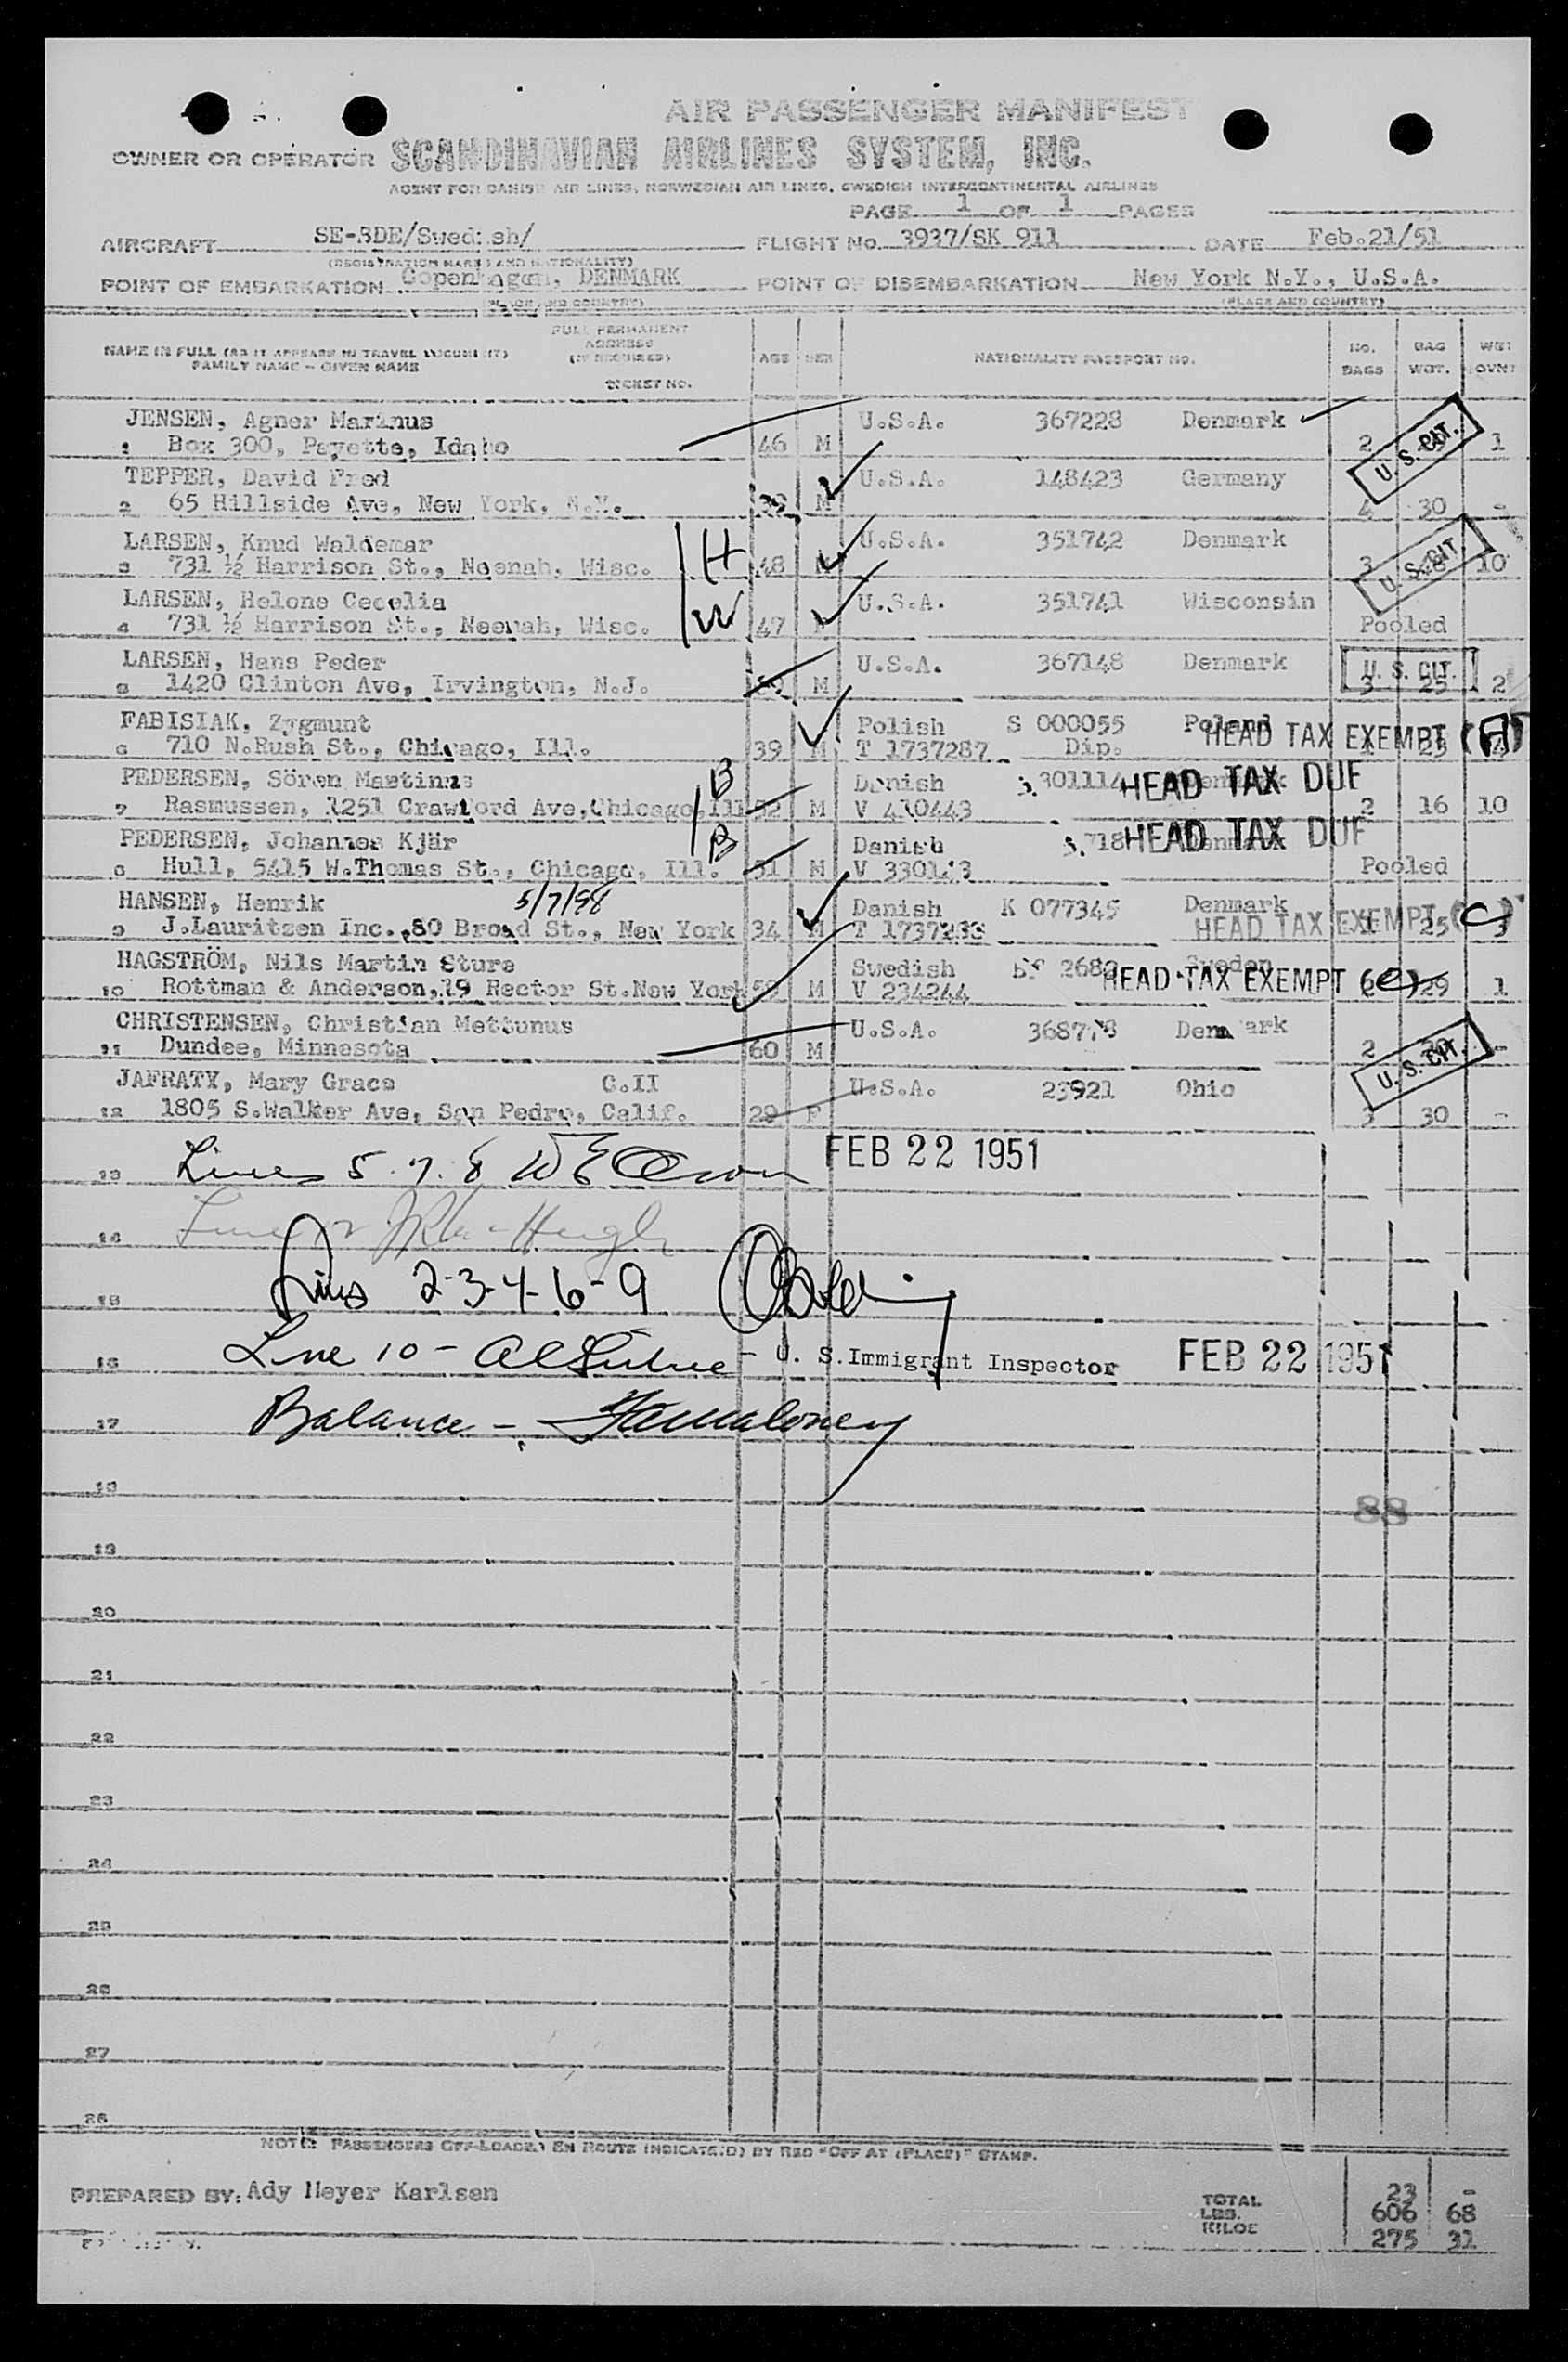 AIR PASSENGER MANIFEST
OWNER OR OPERATOR SCANDINAVIAN AIRLINES SYSTEM, INC.
AGENT FOR DANISH AIR LINES, NORWEGIAN AIR LINES, SWEDISH INTERCONTINENTAL AIRLINES
PAGE 1 OF 1 PAGES
AIRCRAFT SE-BDE/Swedish/ FLIGHT NO. 3937/SK 911 DATE Feb.21/51
(REGISTRATION MARKS AND NATIONALITY)
POINT OF EMBARKATION Copenhagen, DENMARK POINT OF DISEMBARKATION New York N.Y., U.S.A.
(PLACE AND COUNTRY) (PLACE AND COUNTRY)
NAME IN FULL (AS IT APPEARS IN TRAVEL DOCUMENT) FAMILY NAME - GIVEN NAME FULL PERMANENT ADDRESS (IF REQUIRED) TICKET NO. AGE SEX NATIONALITY PASSPORT NO. NO. BAGS BAG WGT. WGT OVNT
JENSEN, Agner Marinus U.S.A. 367228 Denmark U.S. CIT.
1 Box 300, Payette, Idaho 46 M 2 1
TEPPER, David Fred U.S.A. 148423 Germany
2 65 Hillside Ave, New York, N.Y. M 4 30 -
LARSEN, Knud Waldemar H U.S.A. 351742 Denmark U.S. CIT.
3 731 ½ Harrison St., Neenah, Wisc. 48 3 10
LARSEN, Helene Cecelia W U.S.A. 351741 Wisconsin
4 731 ½ Harrison St., Neenah, Wisc. 47 F Pooled
LARSEN, Hans Peder U.S.A. 367148 Denmark U.S. CIT.
5 1420 Clinton Ave, Irvington, N.J. M 3 25 2
FABISIAK, Zygmunt Polish S 000055 Poland HEAD TAX EXEMPT (A)
6 710 N.Rush St., Chicago, Ill. 39 M T 1737287 Dip.
PEDERSEN, Sören Mastinus B Danish 301114 Denmark HEAD TAX DUE
7 Rasmussen, 1251 Crawford Ave, Chicago, Ill 52 M V 410443 2 16 10
PEDERSEN, Johannes Kjär B Danish HEAD TAX DUE
8 Hull, 5415 W.Thomas St., Chicago, Ill. 51 M Pooled
HANSEN, Henrik 5/7/98 Danish K 077345 Denmark HEAD TAX EXEMPT (C)
9 J.Lauritzen Inc.,80 Broad St., New York 34 M 25 3
HAGSTRÖM, Nils Martin Sture Swedish Sweden HEAD TAX EXEMPT (C)
10 Rottman & Anderson,19 Rector St.New York M V 234244 29 1
CHRISTENSEN, Christian Mettunus U.S.A. Denmark U.S. CIT.
11 Dundee, Minnesota 60 M 2 -
JAFRATY, Mary Grace C.II U.S.A. 23921 Ohio
12 1805 S.Walker Ave, San Pedro, Calif. 29 F 3 30 -
13 Lines 5. 7. 8 FEB 22 1951
14
15 Lines 2-3-4-6-9
16 Line 10 - U. S. Immigrant Inspector FEB 22 1951
17 Balance -
18
88
19
20
21
22
23
24
25
26
27
28
NOTE: PASSENGERS OFF-LOADED EN ROUTE INDICATE(D) BY RED "OFF AT (PLACE)" STAMP.
PREPARED BY: Ady Meyer Karlsen
TOTAL 23 -
LBS. 606 68
KILOS 275 31